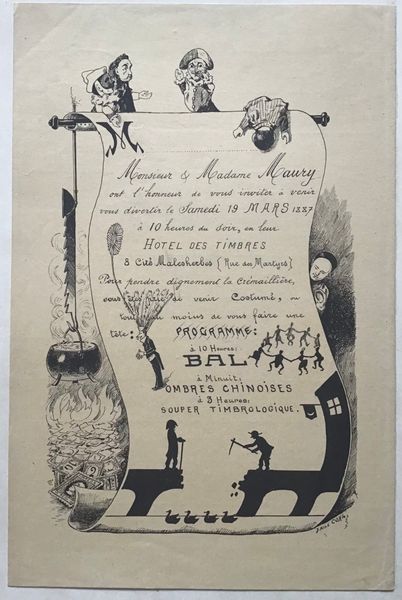 M
Monsieur & Madame Maury
ont l'honneur de vous inviter à venir
vous divertir le Samedi 19 MARS 1887
à 10 heures du soir, en leur
HOTEL DES TIMBRES
8 Cité Malesherbes (Rue des Martyrs)
Pour pendre dignement la Crémaillère,
vous êtes prié de venir Costumé, ou
tout au moins de vous faire une
tête:
PROGRAMME:
à 10 Heures:
BAL
à Minuit:
OMBRES CHINOISES
à 3 Heures:
SOUPER TIMBROLOGIQUE.